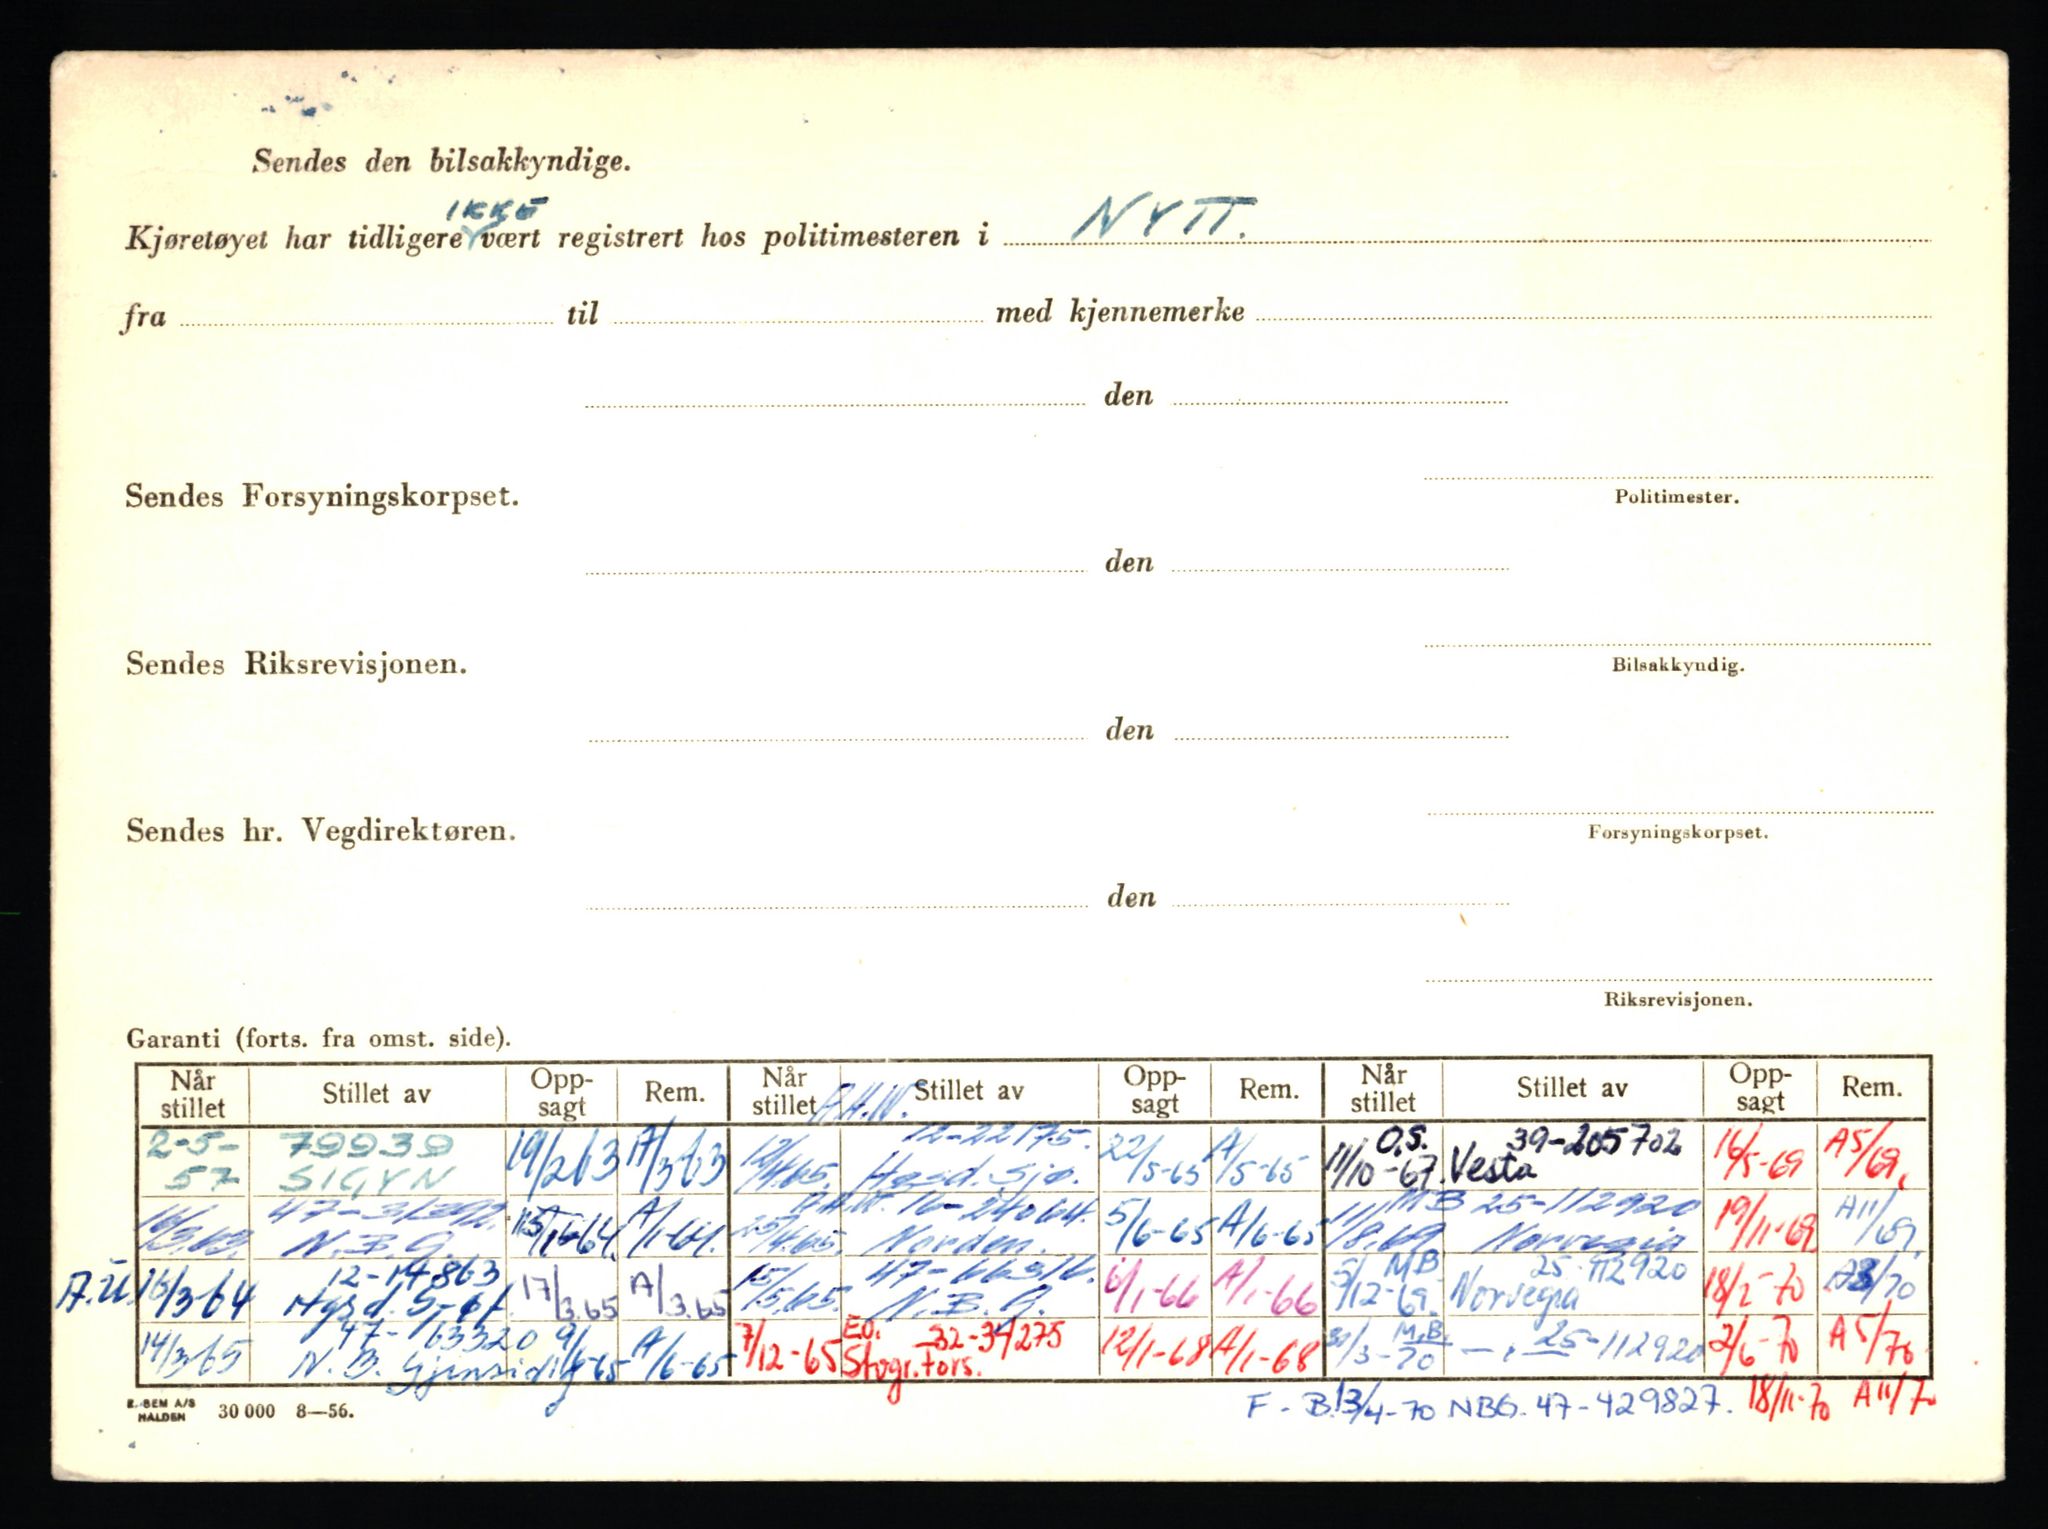 Sendes den bilsakkyndige.
IKKE
Kjøretøyet har tidligere vært registrert hos politimesteren i NYTT.
fra til med kjennemerke
den
Sendes Forsyningskorpset.
Politimester.
den
Sendes Riksrevisjonen.
Bilsakkyndig.
den
Sendes hr. Vegdirektøren.
Forsyningskorpset.
den
Riksrevisjonen.
Garanti (forts. fra omst. side).
Når stillet Stillet av Opp-sagt Rem. Når stillet Stillet av Opp-sagt Rem. Når stillet Stillet av Opp-sagt Rem.
2-5-57 79939 SIGYN 19/2 63 A/3 63
N.B.G. A/1-64.
A.U. 16/3 64 12-14863 17/3.65 A/3.65
14/3 65 47-63320 N.B. Gjensidig 9/6-65 A/6-65
12-22175. 22/5-65 A/5-65
16-24064. Norden. 5/6-65 A/6-65
15/5.65. N.B.G. 6/1-66 A/1-66
7/12-65 E.O. 32-34275 Stvgr. Fors. 12/1-68 A/1-68
O.S. 11/10-67. 39-205702 Vesta 16/5-69 A5/69.
11/8.69 MB 25-112920 Norvegia 19/11-69 A11/69.
5/12-69. MB 25-112920 Norvegia 18/2-70 A3/70
M.B. 25-112920 2/6-70 A5/70
F-B. 13/4-70 NBG. 47-429827. 18/11-70 A11/70
E. SEM A/S
HALDEN 30 000 8—56.